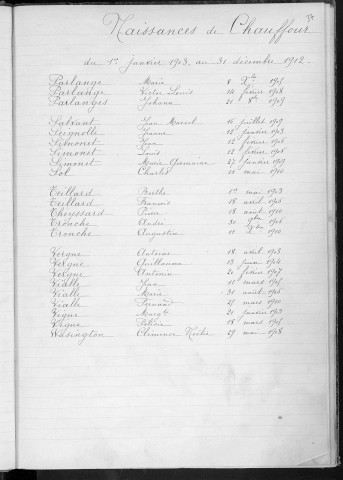 Naissances de Chauffour
du 1er janvier 1903 au 31 décembre 1912.
Parlange Marie 8 Xbre 1905
Parlange Victor Louis 14 février 1908
Parlanges Johana 21 8bre 1909
Salvant Jean Marcel 16 juillet 1909
Seignolle Jeanne 2 janvier
Simonet Jean 12 février 1908
Simonet Louis 12 février 1908
Simonet Marie Germaine 27 janvier 1909
Sol Charles 11 mai 1910
Teillard Berthe 1er mai 1903
Teillard François 18 avril
Theyssard Pierre 18 août 1910
Tronche André 30 9bre
Tronche Augustin 11 1910
Vergne Antoine 18 avril 1903
Vergne Guillaume 13 juin 1904
Vergne Antonin 20 février 1907
Vialle Jean 10 mars
Vialle Marie 30 août
Vialle Fernand 27 mars 1910
Vigne Margte 21 janvier 1903
Vigne 18 mars
Wasington Clémence 29 mai 1908